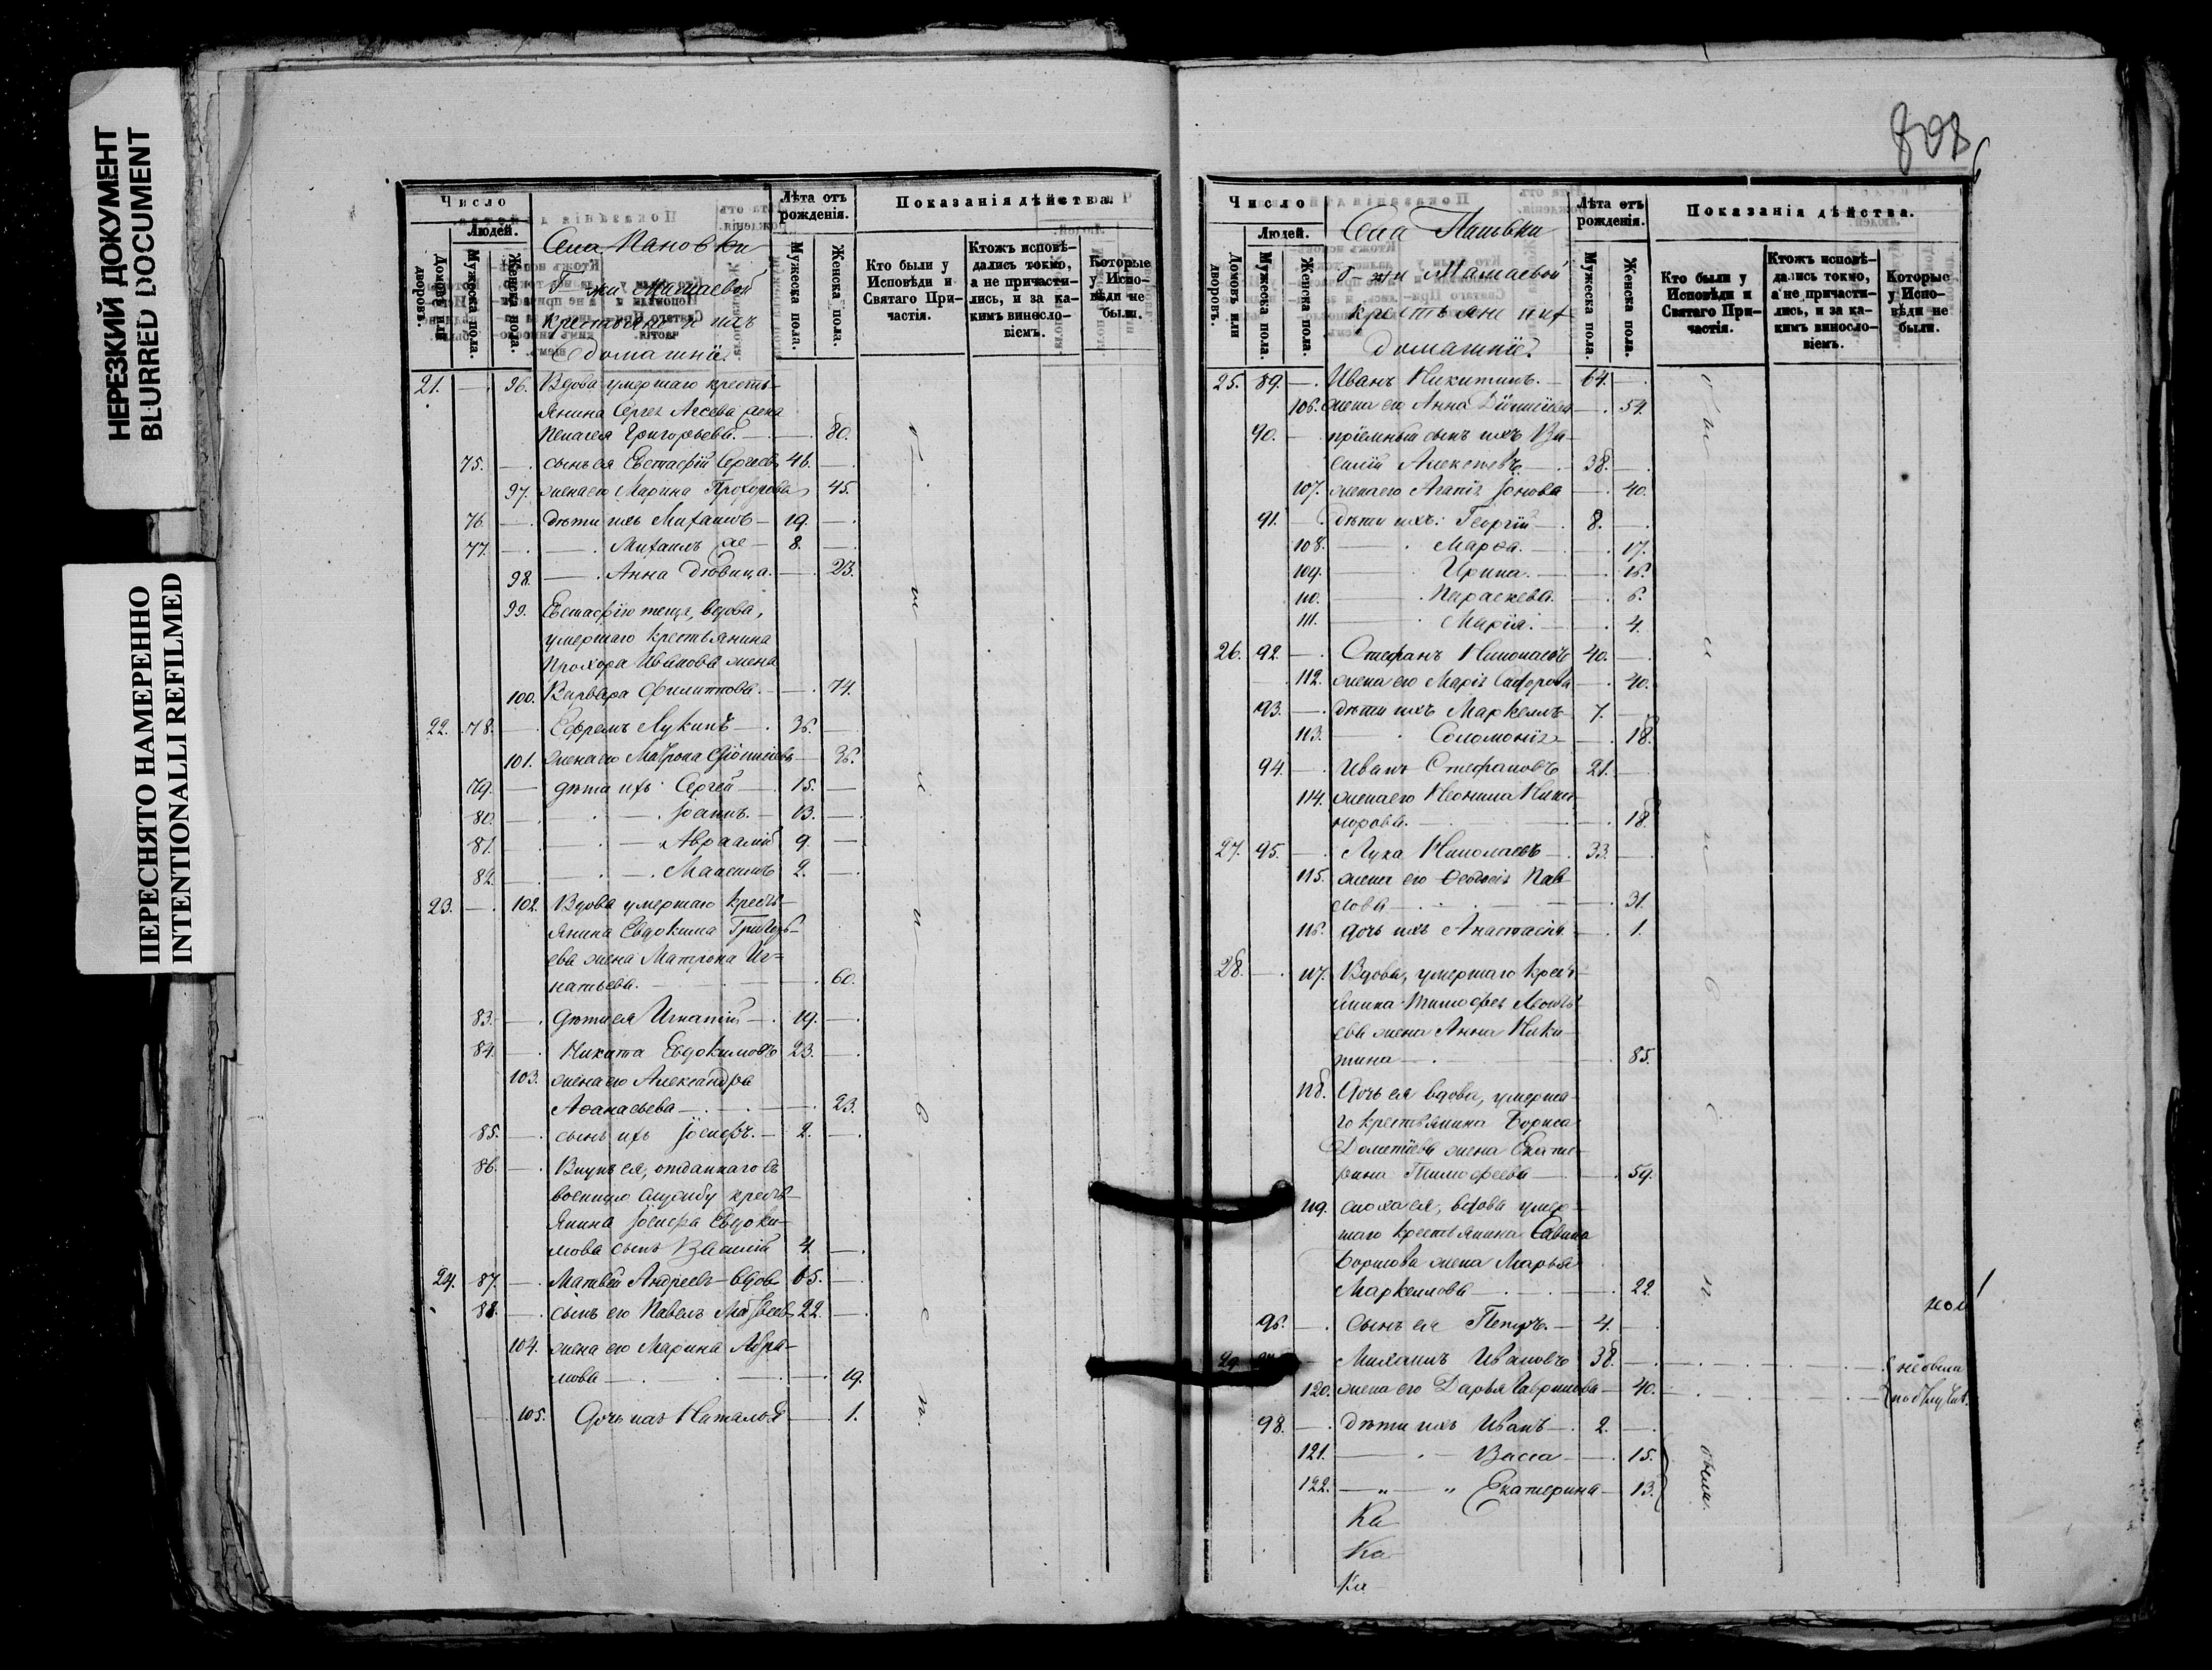 НЕРЕЗКИЙ ДОКУМЕНТ
BLURRED DOCUMENT
ПЕРЕСНЯТО НАМЕРЕННО
INTENTIONALLI REFILMED
Число
Людей.
Домовъ или дворовъ.
Мужеска пола.
Женска пола.
Села Пановки
Г-жи Мамаевой
крестьяне и ихъ
домашніе
Лѣта отъ рожденія.
Мужеска пола.
Женска пола.
Показанія дѣйства.
Кто были у Исповѣди и Святаго Причастія.
Ктожъ исповѣдались токмо, а не причастились, и за какимъ винословіемъ.
Которые у Исповѣди не были.
21. — 96. Вдова умершаго кресть-
янина Сергея жена
Пелагея Григорьева. — 80.
75. — сынъ ея Евстафій Сергеевъ 46. —
97. жена его Марина Прохорова 45.
76. — дѣти ихъ Михаилъ — 19. —
77. — Михаилъ 8. —
98. — Анна дѣвица. — 23.
99. Евстафію теща, вдова,
умершаго крестьянина
Прохора Иванова жена
100. Варвара Филиппова. — 74.
22. 78. — Ефремъ Лукинъ — 36. —
101. жена его Матрона — 36.
79. — дѣти ихъ Сергей — 15. —
80. — Іоаннъ. — 13. —
81. — Авраамій 9. —
82. — 2. —
23. — 102. Вдова умершаго крест-
янина Евдокима Григорь-
ева жена Матрона Иг-
натьева. — 60.
83. — дѣти ея Игнатій — 19. —
84. — Никита Евдокимовъ 23. —
103. жена его Александра
Аѳанасьева — 23.
85. — сынъ ихъ Іосифъ. — 2. —
86. — Внукъ ея, отданнаго въ
военную службу крест-
янина Іосифа Евдоки-
мова сынъ Василій 4. —
24. 87. — Матвей Андреевъ вдовъ 65. —
88. — сынъ его Павелъ Матвеевъ 22. —
104. жена его Марина Абра-
мова — 19.
105. Дочь ихъ Наталья — 1.
Число
Людей.
Домовъ или дворовъ.
Мужеска пола.
Женска пола.
Села Пановки
Г-жи Мамаевой
крестьяне ихъ
домашніе.
Лѣта отъ рожденія.
Мужеска пола.
Женска пола.
Показанія дѣйства.
Кто были у Исповѣди и Святаго Причастія.
Ктожъ исповѣдались токмо, а не причастились, и за какимъ винословіемъ.
Которые у Исповѣди не были.
25. 89. — Иванъ Никитинъ. — 64. —
106. жена его Анна — 54.
90. — пріемный сынъ ихъ Ва-
силій Алексѣевъ — 38. —
107. жена его Агапія Іонова — 40.
91. — дѣти ихъ: Георгій — 8. —
108. — Марѳа. — 17.
109. — Ирина. — 16.
110. — Параскева. — 6.
111. — Марія. — 4.
26. 92. — Стефанъ Николаевъ 40. —
112. жена его Марія — 40.
93. — дѣти ихъ Маркеллъ 7. —
113. — Соломонія — 18.
94. — Иванъ Стефановъ 21. —
114. жена его Неонила Ника-
норова. — 18.
27. 95. — Лука Николаевъ — 33. —
115. жена его Ѳеодосія Пав-
лова — 31.
116. дочь ихъ Анастасія. — 1.
28. — 117. Вдова, умершаго крест-
янина Тимофея Леонть-
ева жена Анна Ники-
тина — 85.
118. Дочь ея вдова, умерша-
го крестьянина Бориса
Дометіева жена Екате-
рина Тимофеева — 59.
119. сноха ея, вдова умер-
шаго крестьянина Саввина
Борисова жена Марья
Маркеллова — 22.
96. — Сынъ ея Петръ. — 4. —
29. Михаилъ Ивановъ 38. —
120. жена его Дарья Гаврилова — 40.
98. — дѣти ихъ Иванъ — 2. —
121. — Васса — 15.
122. — „ — „ Екатерина — 13.
были.
не были
Ка
Ка
Ка